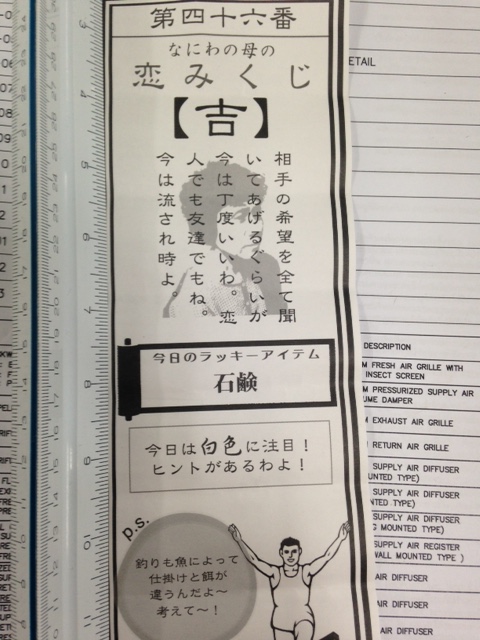 第四十六番
なにわの母の
恋みくじ
【吉】
相手の希望を全て聞
いてあげるぐらいが
今は丁度いいわ。恋
人でも友達でもね。
今は流され時よ。
今日のラッキーアイテム
石鹸
今日は白色に注目!
ヒントがあるわよ!
p.s.
釣りも魚によって
仕掛けと餌が
違うんだよ~
考えて~!
ETAIL
DESCRIPTION
M FRESH AIR GRILLE WITH
INSECT SCREEN
M PRESSURIZED SUPPLY AIR
UME DAMPER
M EXHAUST AIR GRILLE
RETURN AIR GRILLE
SUPPLY AIR DIFFUSER
NTED TYPE)
SUPPLY AIR DIFFUSER
NTED TYPE)
SUPPLY AIR DIFFUSER
G MOUNTED TYPE)
SUPPLY AIR REGISTER
WALL MOUNTED TYPE )
AIR DIFFUSER
AIR DIFFUSER
AIR DIFFUSER